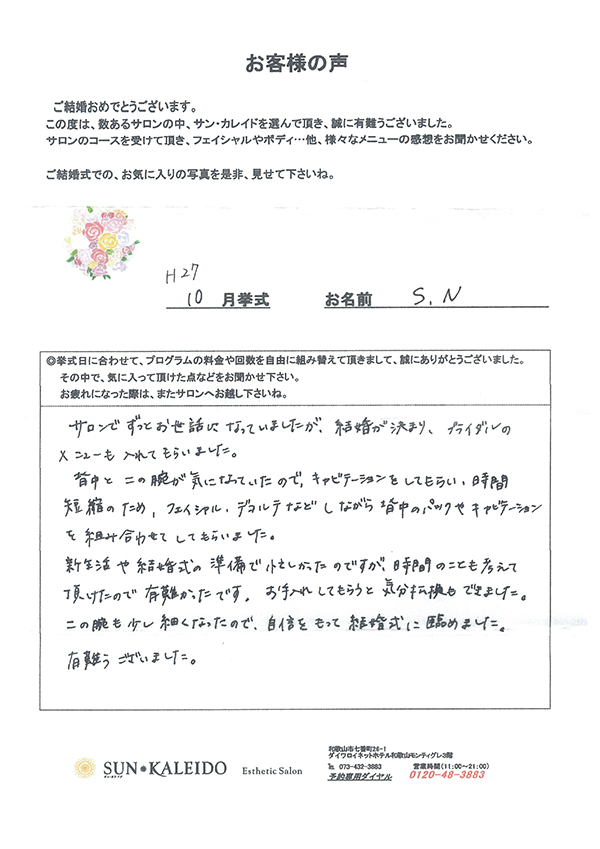 お客様の声
ご結婚おめでとうございます。
この度は、数あるサロンの中、サン・カレイドを選んで頂き、誠に有難うございました。
サロンのコースを受けて頂き、フェイシャルやボディ…他、様々なメニューの感想をお聞かせください。
ご結婚式での、お気に入りの写真を是非、見せて下さいね。
H27
10 月挙式 お名前 S.N
◎挙式日に合わせて、プログラムの料金や回数を自由に組み替えて頂きまして、誠にありがとうございました。
その中で、気に入って頂けた点などをお聞かせ下さい。
お疲れになった際は、またサロンへお越し下さいね。
サロンでずっとお世話になっていましたが、結婚が決まり、ブライダルの
メニューも入れてもらいました。
背中と二の腕が気になっていたので、キャビテーションをしてもらい、時間
短縮のため、フェイシャル・デコルテなどしながら背中のパックやキャビテーション
を組み合わせてしてもらいました。
新生活や結婚式の準備で忙しかったのですが、時間のことも考えて
頂けたので有難かったです。お手入れしてもらうと気分転換もできました。
二の腕も少し細くなったので、自信をもって結婚式に臨めました。
有難うございました。
SUN・KALEIDO Esthetic Salon
サン・カレイド
和歌山市七番町26-1
ダイワロイネットホテル和歌山モンティグレ3階
℡ 073-432-3883 営業時間(11:00〜21:00)
予約専用ダイヤル 0120-48-3883